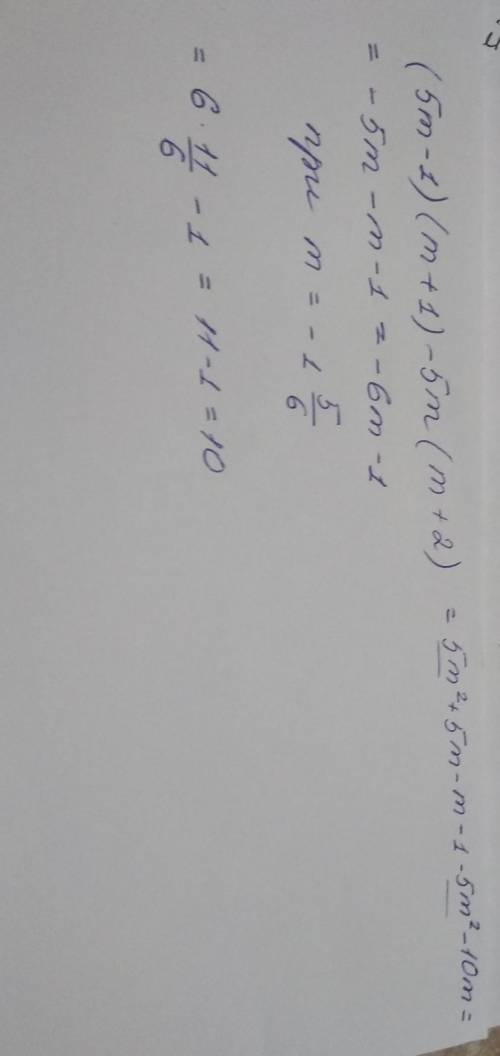 (5m-1)(m+1)-5m(m+2) = 5m²+5m-m-1-5m²-10m=
= -5m-m-1=-6m-1
при m = -1 5/6
= 6 · 11/6 - 1 = 11-1=10